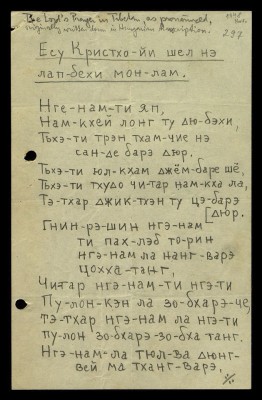 The Lord's Prayer in Tibetan, as pronounced,
originally written down in Hungarian transcription.
297
Есу Кристхо-йи шел нэ
лап-бехи мон-лам.
Нге-нам-ти яп,
Нам-кхей лонг ту дю-бэхи,
Тьхэ-ти трэн тхам-чие нэ
сан-де барэ дюр.
Тьхэ-ти юл-кхам джём-баре шё,
Тьхэ-ти тхудо чи-тар нам-кха ла,
Тэ-тхар джик-тхэн ту цэ-барэ
[дюр.
Гнин-рэ-шин нгэ-нам
ти пах-лэб то-рин
нгэ-нам ла нанг-варэ
цохха-танг,
Чи-тар нгэ-нам-ти нгэ-ти
Пу-лон-кэн ла зо-бхарэ-че,
тэ-тхар нгэ-нам ла нгэ-ти
пу-лон зо-бхарэ-зо-бха танг.
Нгэ-нам-ла тюл-ва дюнг-
вей ма тханг-варэ.